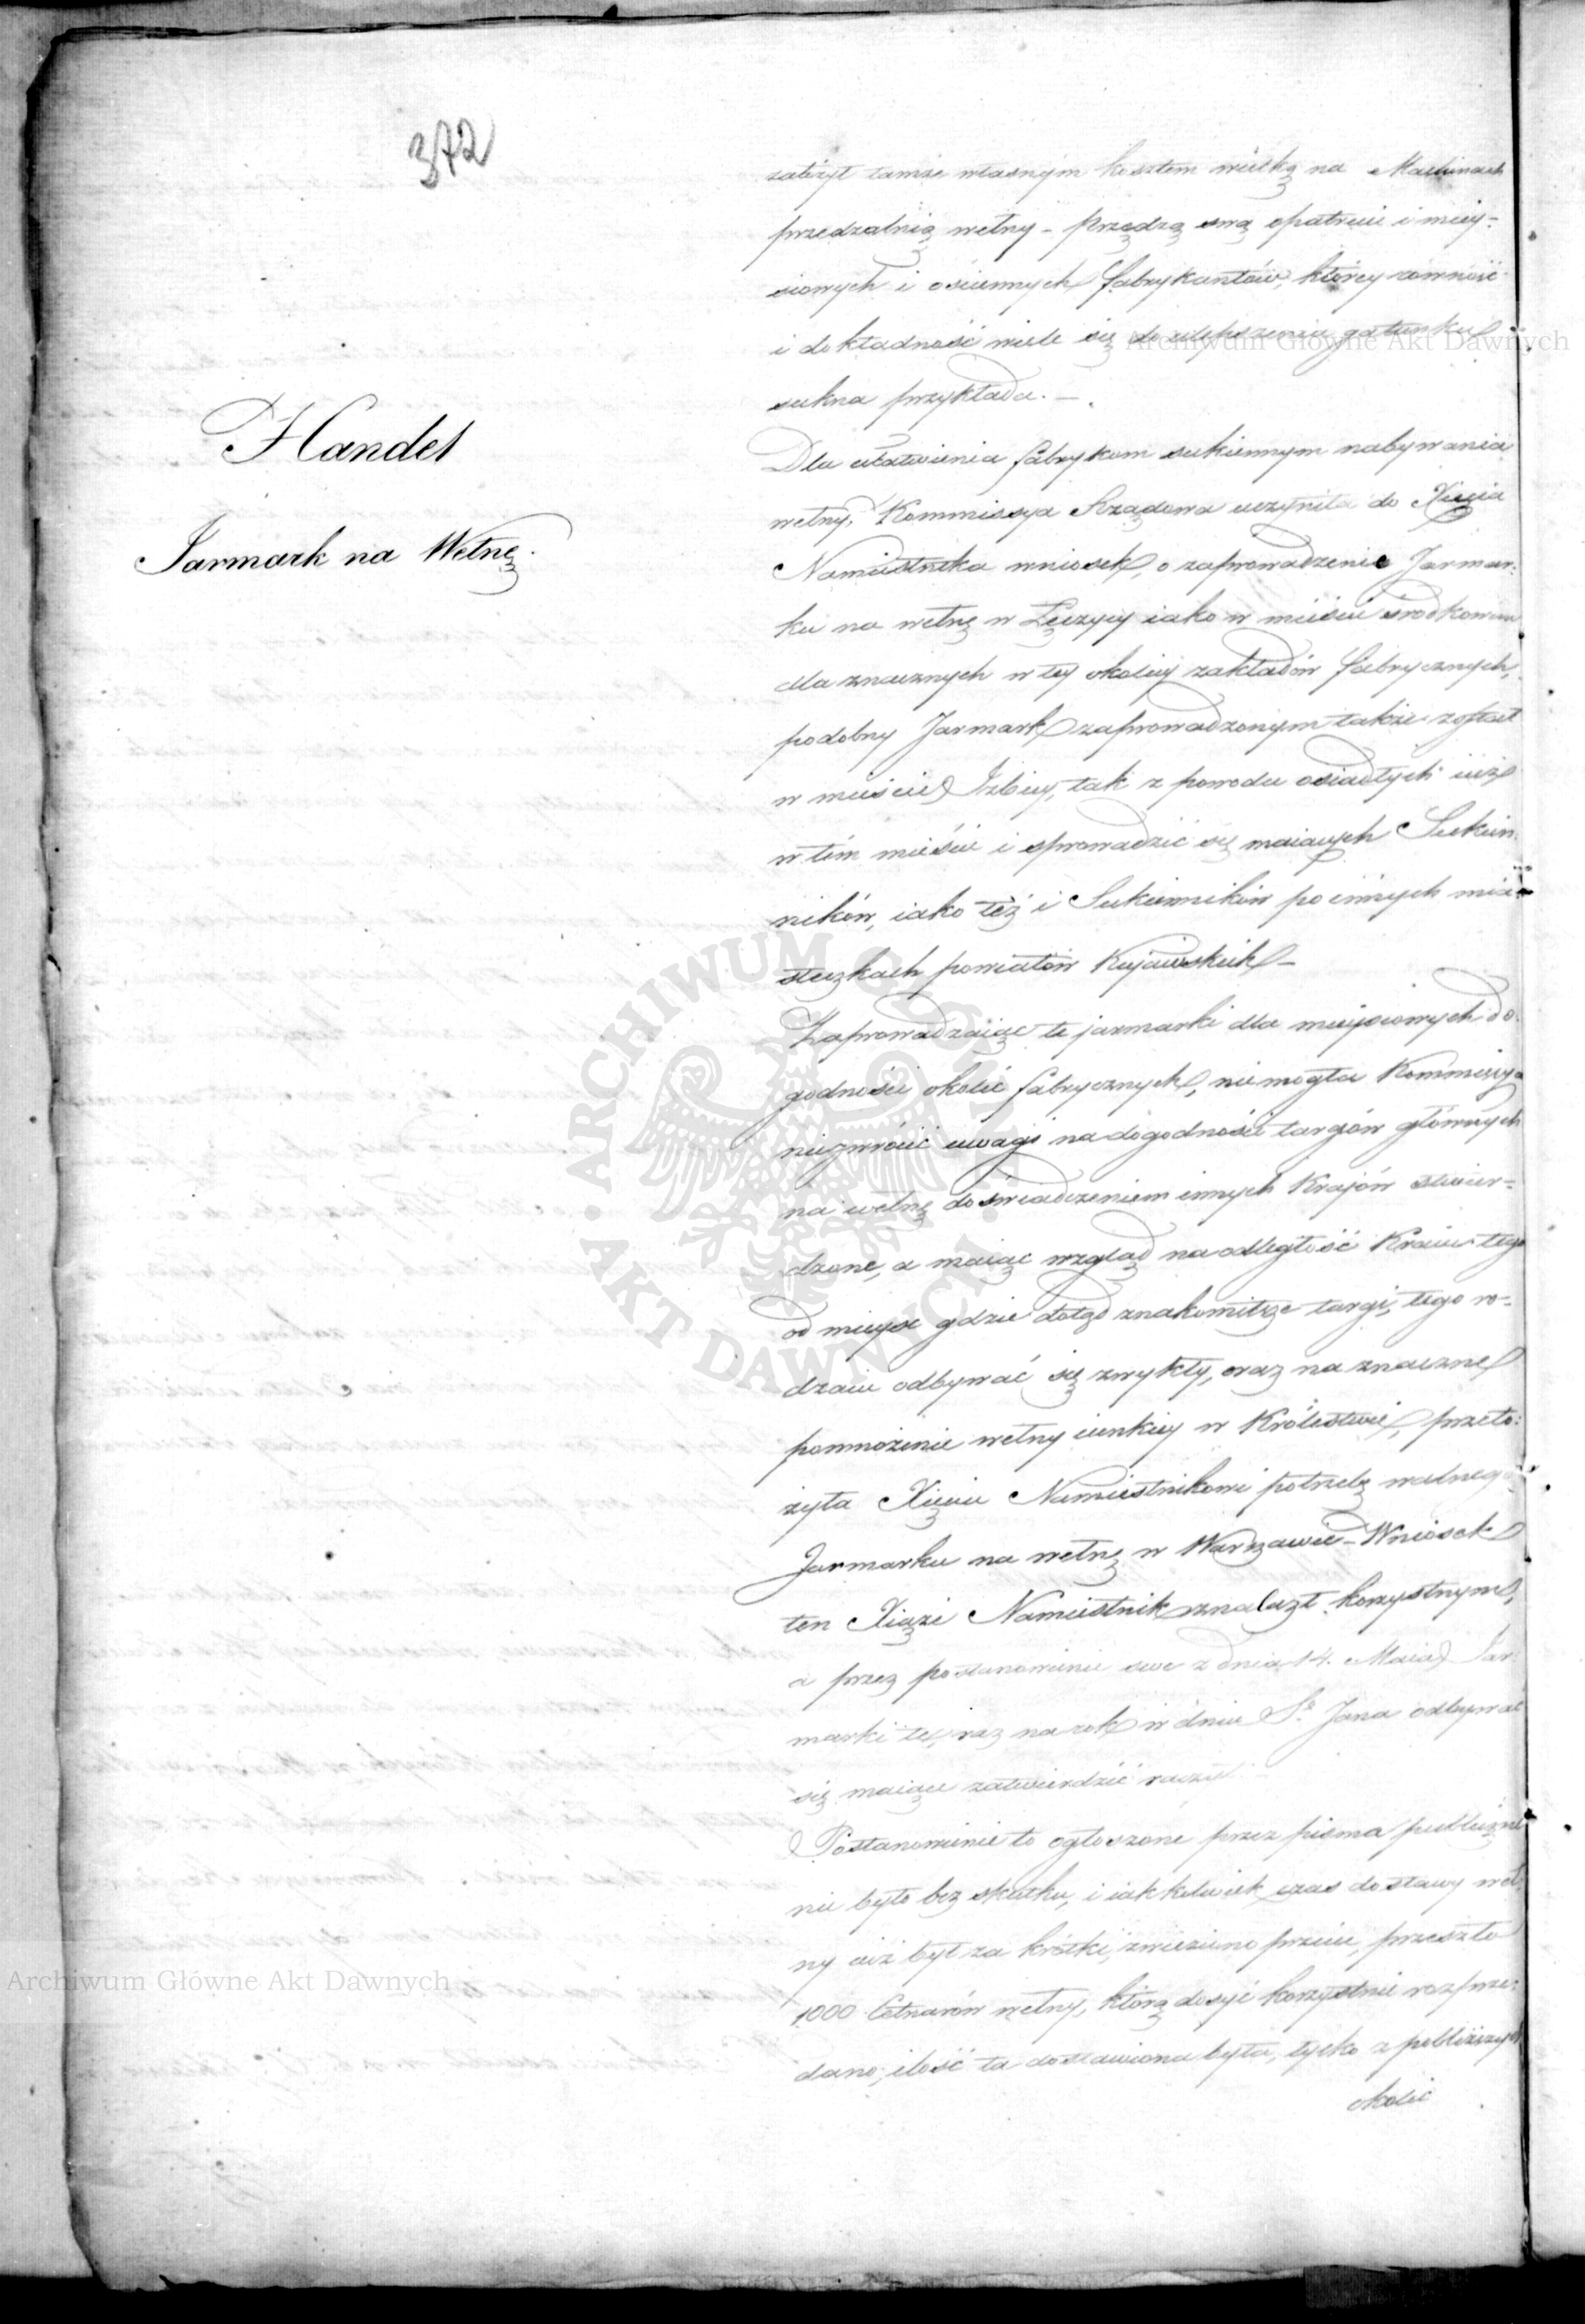 372
założył tamże własnym kosztem wielką na Machinach
przedzalnią wełny – przędzą swą opatruie i miey-
scowych i ościennych fabrykantów, którey równość
i dokładność wiele się do ulepszenia gatunku
sukna przykłada. –
Handel
Dla ułatwienia fabrykom sukiennym nabywania
wełny, Kommissya Rządowa uczyniła do Xięcia
Jarmark na Wełnę.
Namiestnika wniosek, o zaprowadzenie Jarmar-
ku na wełnę w Łęczycy iako w mieście środkowem
dla znacznych w tey okolicy zakładów fabrycznych,
podobny Jarmark zaprowadzonym także został
w mieście Izbicy, tak z powodu osiadłych iuż
w tém mieście i sprowadzić się maiących Sukien-
ników, iako też i Sukienników po innych mia-
steczkach powiatów Kujawskich –
Zaprowadzaiąc te jarmarki dla mieyscowych do-
godności okolic fabrycznych, nie mogła Kommissya
niezwrócić uwagi na dogodności targów głównych
na wełnę doświadczeniem innych Krajów stwier-
dzone, a maiąc wzgląd na odległość Kraiu tego
od mieysc gdzie dotąd znakomitsze targi, tego ro-
dzaiu odbywać się zwykły, oraz na znaczne
pomnożenie wełny cienkiey w Królestwie, przeło-
żyła Xięciu Namiestnikowi potrzebę walnego
Jarmarku na wełnę w Warszawie – Wniosek
ten Xiąże Namiestnik znalazł korzystnym,
a przez postanowienie swe z dnia 14. Maia Jar-
marki te, raz na rok w dniu Sº Jana odbywać
się maiące zatwierdzić raczył –
Postanowienie to ogłoszone przez pisma publiczne
nie było bez skutku, i iakkolwiek czas dostawy weł-
ny iuż był za krótki, zwieziono przecie, przeszło
1000 Cetnarów wełny, którą dosyć korzystnie rozprze-
dano; ilość ta dostawiona była, tylko z pobliższych
okolic
Archiwum Główne Akt Dawnych
Archiwum Główne Akt Dawnych
ARCHIWUM GŁÓWNE AKT DAWNYCH